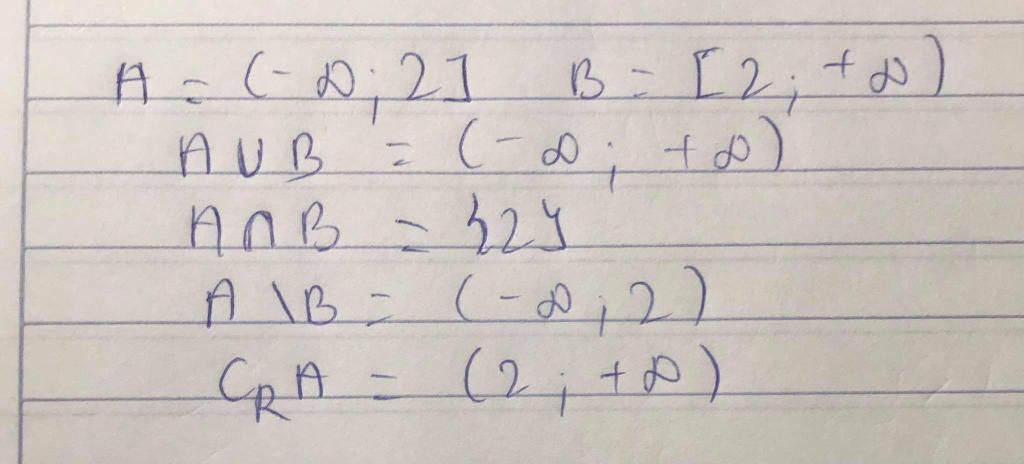 A = (-∞; 2] B = [2; +∞)
A ∪ B = (-∞; +∞)
A ∩ B = {2}
A \ B = (-∞; 2)
C_R A = (2; +∞)